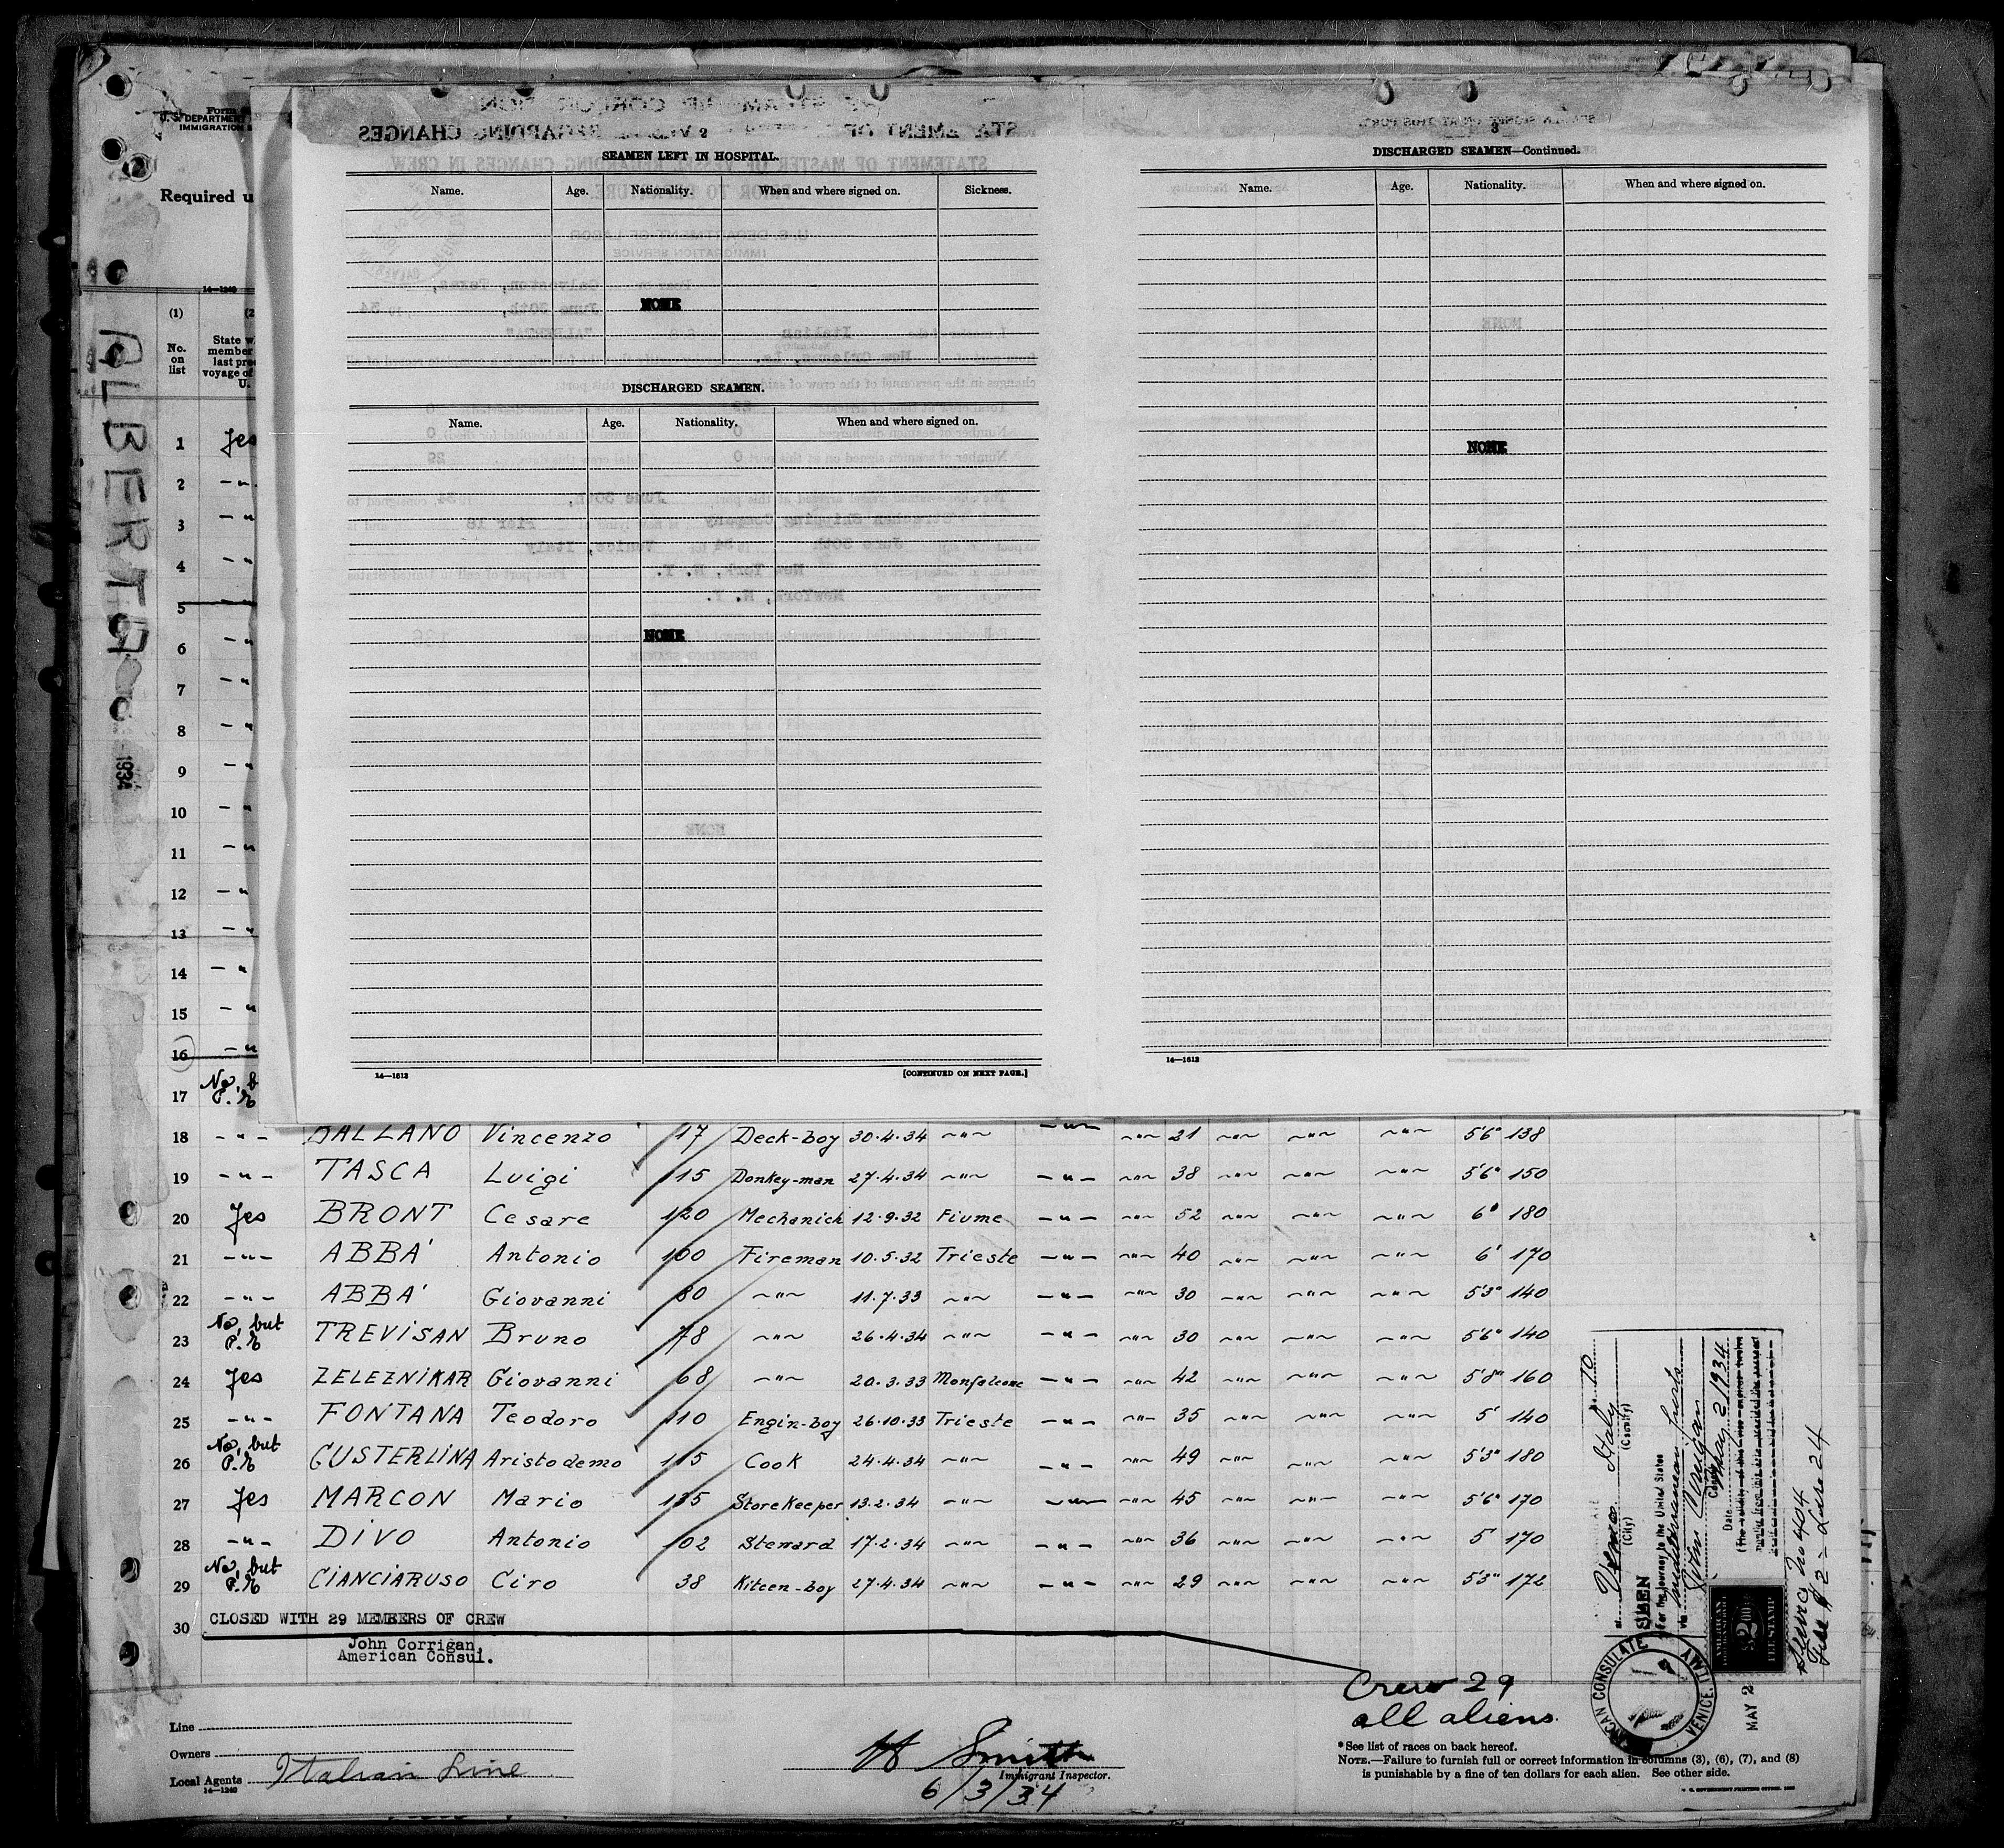 Form
U. S. DEPARTMENT
IMMIGRATION S
Required u
14—1240
(1)
(2
No.
on
list
State w
member
last prec
voyage of
U.
ALBERTA
1934
SEAMEN LEFT IN HOSPITAL.
Name. Age. Nationality. When and where signed on. Sickness.
NONE
DISCHARGED SEAMEN.
Name. Age. Nationality. When and where signed on.
NONE
14—1613 [CONTINUED ON NEXT PAGE.]
3
DISCHARGED SEAMEN—Continued.
Name. Age. Nationality. When and where signed on.
NONE
14—1613
1 Jes
2 -"-
3 -"
4 -"
5 -"
6 -"
7 -"
8 -"
9 -"
10 -"
11 -"
12 -"
13 -"
14 -"
15 -"
16 -"
17 No, b P.E
18 -"- BALLANO Vincenzo 17 Deck-boy 30.4.34 -"- -"- -"- 21 -"- -"- -"- 5'6" 138
19 -"- TASCA Luigi 115 Donkey-man 27.4.34 -"- -"- -"- 38 -"- -"- -"- 5'6" 150
20 Jes BRONT Cesare 120 Mechanick 12.9.32 Fiume -"- -"- 52 -"- -"- -"- 6' 180
21 -"- ABBA' Antonio 100 Fireman 10.5.32 Trieste -"- -"- 40 -"- -"- -"- 6' 170
22 -"- ABBA' Giovanni 80 -"- 11.7.33 -"- -"- -"- 30 -"- -"- -"- 5'3" 140
23 No, but P.E TREVISAN Bruno 78 -"- 26.4.34 -"- -"- -"- 30 -"- -"- -"- 5'6" 140
24 Jes ZELEZNIKAR Giovanni 68 -"- 20.3.33 Monfalcone -"- -"- 42 -"- -"- -"- 5'8" 160
25 -"- FONTANA Teodoro 110 Engin-boy 26.10.33 Trieste -"- -"- 35 -"- -"- -"- 5' 140
26 No, but P.E CUSTERLINA Aristodemo 115 Cook 24.4.34 -"- -"- -"- 49 -"- -"- -"- 5'3" 180
27 Jes MARCON Mario 135 Storekeeper 13.2.34 -"- -"- -"- 45 -"- -"- -"- 5'6" 170
28 -"- DIVO Antonio 102 Steward 17.2.34 -"- -"- -"- 36 -"- -"- -"- 5' 170
29 No, but P.E CIANCIARUSO Ciro 38 Kiteen-boy 27.4.34 -"- -"- -"- 29 -"- -"- -"- 5'3" 172
30 CLOSED WITH 29 MEMBERS OF CREW
John Corrigan,
American Consul.
Crew 29
all aliens
Line
Owners
Local Agents Italian Line
14—1240
H Smith
Immigrant Inspector.
6/3/34
*See list of races on back hereof.
NOTE.—Failure to furnish full or correct information in columns (3), (6), (7), and (8)
is punishable by a fine of ten dollars for each alien. See other side.
U. S. GOVERNMENT PRINTING OFFICE
No. 70
at Venice Italy
(City) (Country)
SEEN
For the journey to the United States
via Mediterranean ports
John Corrigan
Consul
Date May 2 1934
AMERICAN
$2.00
FEE STAMP
AMERICAN CONSULATE
VENICE, ITALY
MAY 2
Service No 404
Fee $2 = Lire 24